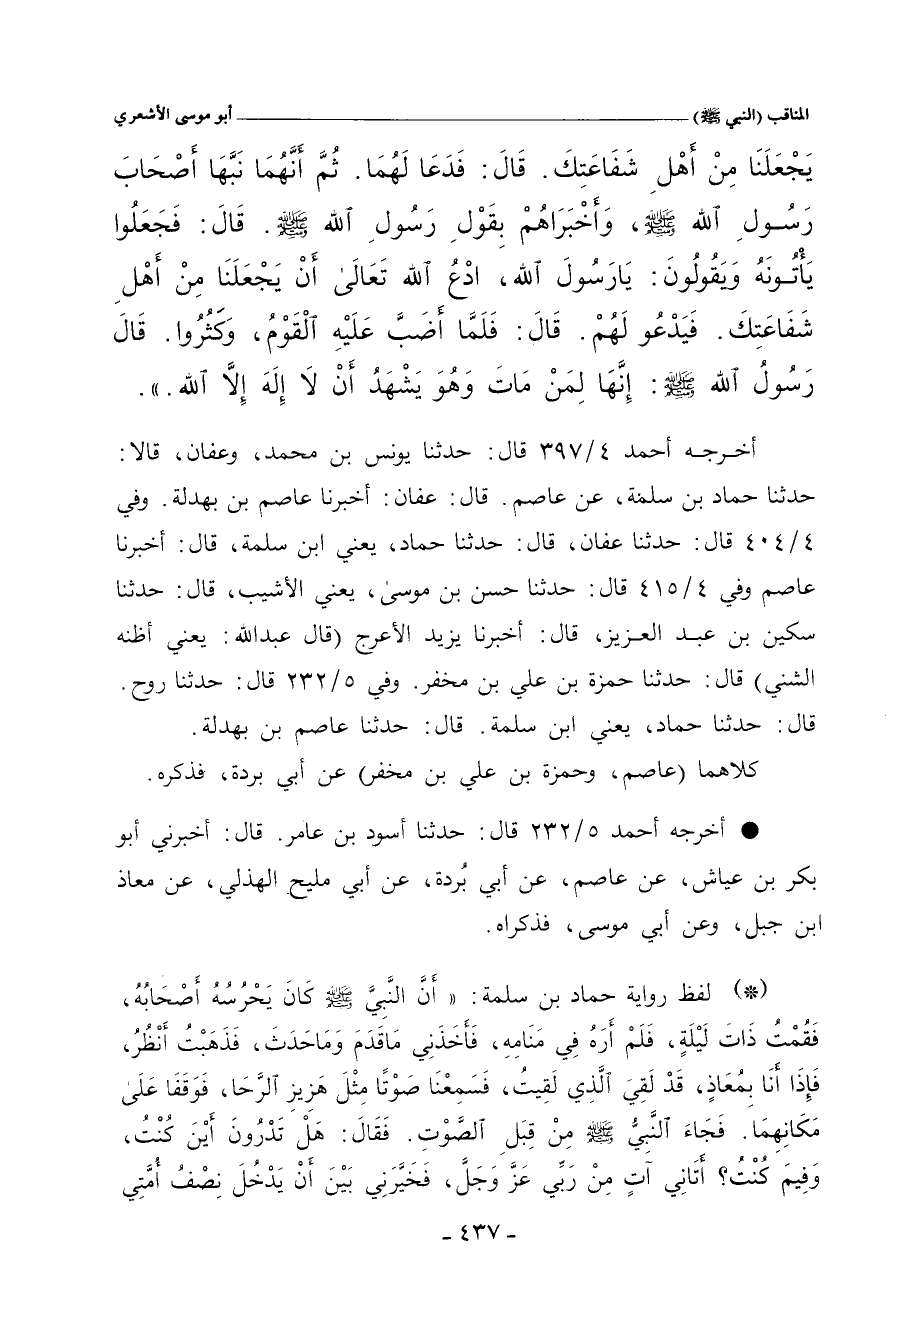 المناقب (النبي ﷺ) ــــــــــــ أبو موسى الأشعري
يَجْعَلَنَا مِنْ أَهْلِ شَفَاعَتِكَ. قَالَ: فَدَعَا لَهُمَا. ثُمَّ أَنَّهُمَا نَبَّهَا أَصْحَابَ
رَسُولِ ٱللهِ ﷺ، وَأَخْبَرَاهُمْ بِقَوْلِ رَسُولِ ٱللهِ ﷺ. قَالَ: فَجَعَلُوا
يَأْتُونَهُ وَيَقُولُونَ: يَارَسُولَ ٱللهِ، ادْعُ ٱللهَ تَعَالَىٰ أَنْ يَجْعَلَنَا مِنْ أَهْلِ
شَفَاعَتِكَ. فَيَدْعُو لَهُمْ. قَالَ: فَلَمَّا أَضَبَّ عَلَيْهِ ٱلْقَوْمُ، وَكَثُرُوا. قَالَ
رَسُولُ ٱللهِ ﷺ: إِنَّهَا لِمَنْ مَاتَ وَهُوَ يَشْهَدُ أَنْ لَا إِلَهَ إِلَّا ٱلله.».
أخرجه أحمد ٣٩٧/٤ قال: حدثنا يونس بن محمد، وعفان، قالا:
حدثنا حماد بن سلمة، عن عاصم. قال: عفان: أخبرنا عاصم بن بهدلة. وفي
٤٠٤/٤ قال: حدثنا عفان، قال: حدثنا حماد، يعني ابن سلمة، قال: أخبرنا
عاصم وفي ٤١٥/٤ قال: حدثنا حسن بن موسىٰ، يعني الأشيب، قال: حدثنا
سكين بن عبد العزيز، قال: أخبرنا يزيد الأعرج (قال عبدالله: يعني أظنه
الشني) قال: حدثنا حمزة بن علي بن مخفر. وفي ٢٣٢/٥ قال: حدثنا روح.
قال: حدثنا حماد، يعني ابن سلمة. قال: حدثنا عاصم بن بهدلة.
كلاهما (عاصم، وحمزة بن علي بن مخفر) عن أبي بردة، فذكره.
● أخرجه أحمد ٢٣٢/٥ قال: حدثنا أسود بن عامر. قال: أخبرني أبو
بكر بن عياش، عن عاصم، عن أبي بُردة، عن أبي مليح الهذلي، عن معاذ
ابن جبل، وعن أبي موسى، فذكراه.
(*) لفظ رواية حماد بن سلمة: « أَنَّ النَّبِيَّ ﷺ كَانَ يَحْرُسُهُ أَصْحَابُهُ،
فَقُمْتُ ذَاتَ لَيْلَةٍ، فَلَمْ أَرَهُ فِي مَنَامِهِ، فَأَخَذَنِي مَاقَدَمَ وَمَاحَدَثَ، فَذَهَبْتُ أَنْظُرُ،
فَإِذَا أَنَا بِمُعَاذٍ، قَدْ لَقِيَ ٱلَّذِي لَقِيتُ، فَسَمِعْنَا صَوْتًا مِثْلَ هَزِيزِ ٱلرَّحَا، فَوَقَفَا عَلَىٰ
مَكَانِهِمَا. فَجَاءَ ٱلنَّبِيُّ ﷺ مِنْ قِبَلِ ٱلصَّوْتِ. فَقَالَ: هَلْ تَدْرُونَ أَيْنَ كُنْتُ،
وَفِيمَ كُنْتُ؟ أَتَانِي آتٍ مِنْ رَبِّي عَزَّ وَجَلَّ، فَخَيَّرَنِي بَيْنَ أَنْ يَدْخُلَ نِصْفُ أُمَّتِي
- ٤٣٧ -